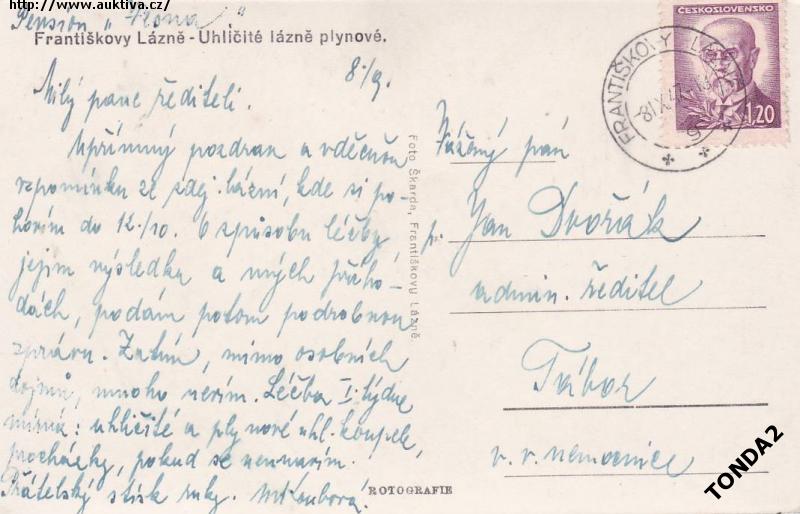 http://www.auktiva.cz/
Pension „Ilona"
Františkovy Lázně - Uhličité lázně plynové.
8/9.
Milý pane řediteli.
Upřímný pozdrav a vděčnou
vzpomínku ze zdej. lázní, kde si po-
hovím do 12./10. O způsobu léčby
jejím výsledku a mých přího-
dách, podám potom podrobnou
zprávu. Zatím, mimo osobních
dojmů, mnoho nevím. Léčba I. týdne
mírná: uhličité a plynové uhl. koupele,
procházky, pokud se neunavím.
Přátelský stisk ruky.
Foto Škarda, Františkovy Lázně
ROTOGRAFIE
ČESKOSLOVENSKO
1,20
FRANTIŠKOVY LÁZNĚ
Vážený pán
p. Jan Dvořák
admin. ředitel
Tábor
v. v. nemocnice
TONDA2